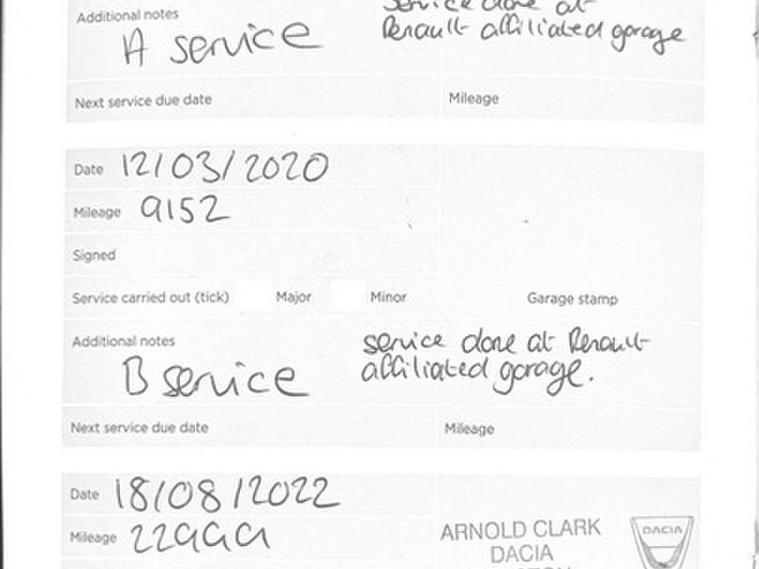 Additional notes
service done at
A service
Renault affiliated garage
Next service due date Mileage
Date 12/03/2020
Mileage 9152
Signed
Service carried out (tick) Major Minor Garage stamp
Additional notes
service done at Renault
B service
affiliated garage.
Next service due date Mileage
Date 18/08/2022
Mileage 22999
ARNOLD CLARK
DACIA
DACIA